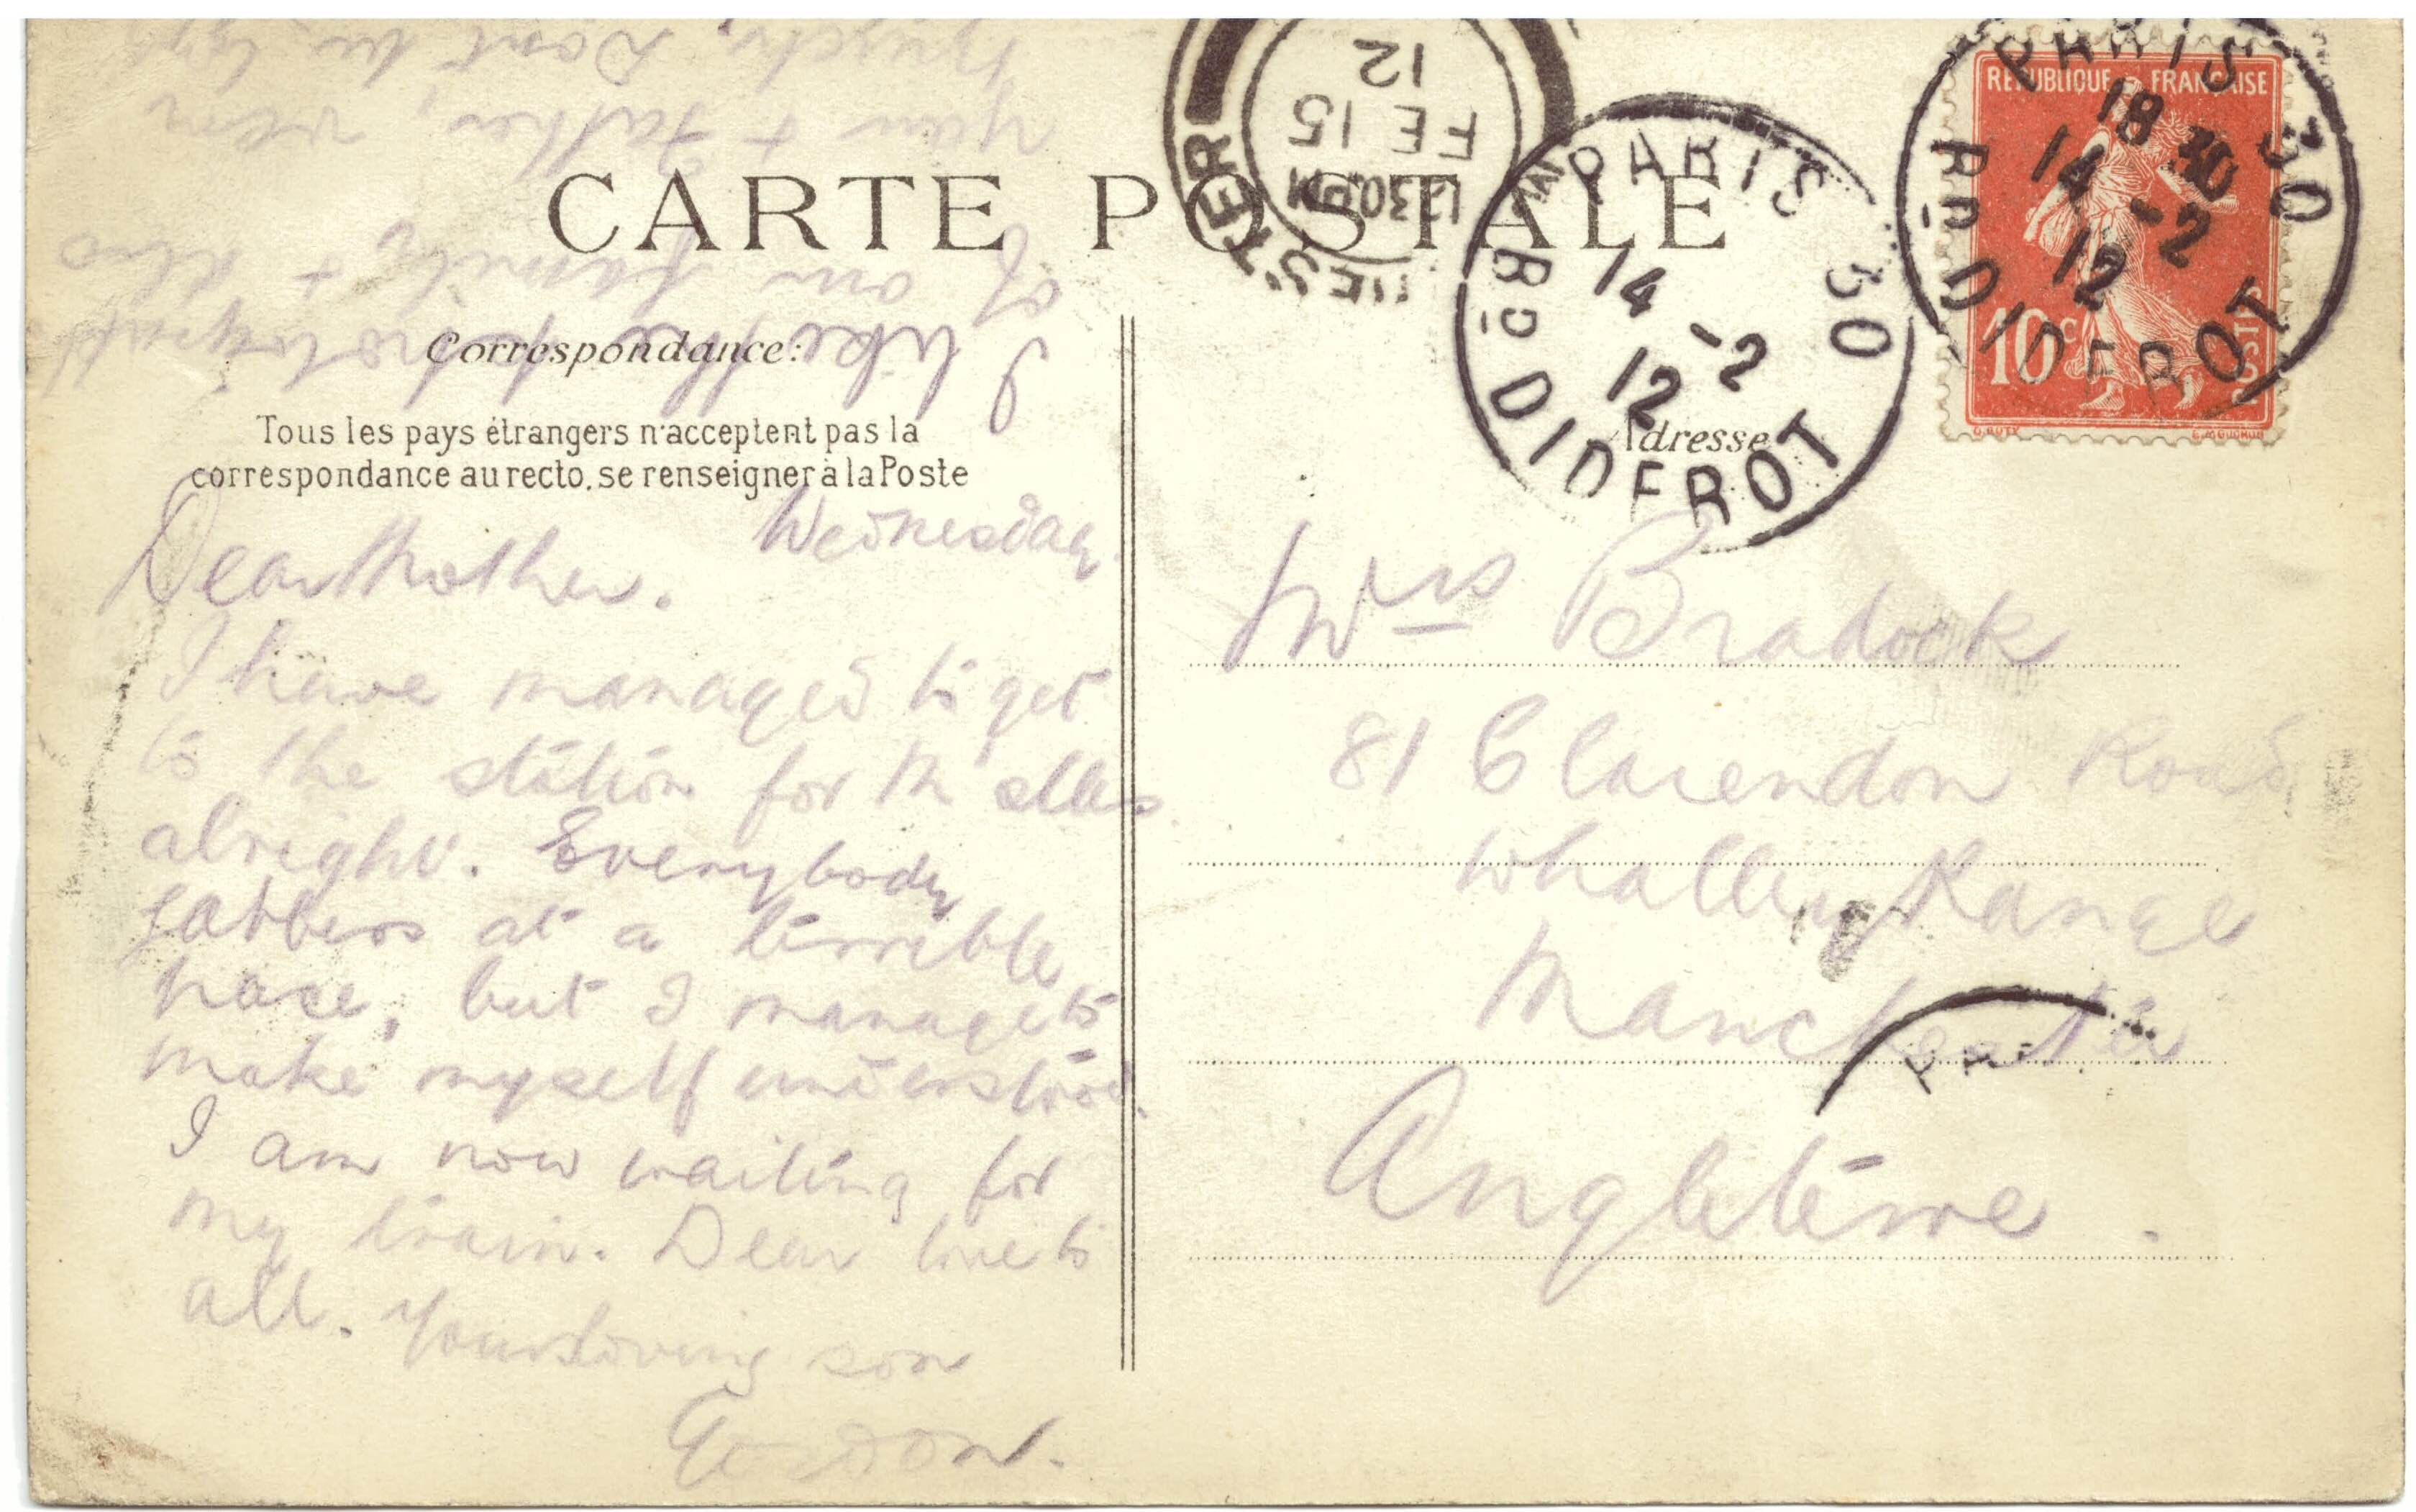 CARTE POSTALE
Correspondance:
Tous les pays étrangers n'acceptent pas la
correspondance au recto, se renseigner à la Poste
Wednesday.
Dear Mother.
I have managed to get
to the station for
alright. Everybody
jabbers at a terrible
pace, but I manage to
make myself understood.
I am now waiting for
my train. Dear love to
all. Your loving son
Gordon.
I like the
of our family + also
your + Father
Dont be
12
FE 15
12 30 PM
PARIS 30
14 -2
12
R. DIDEROT
REPUBLIQUE FRANÇAISE
10c
POSTES
PARIS 30
18 30
14 -2
12
R. DIDEROT
Adresse
Mrs Bradock
81 Clarendon Road,
Whalley Range
Manchester
Angleterre.